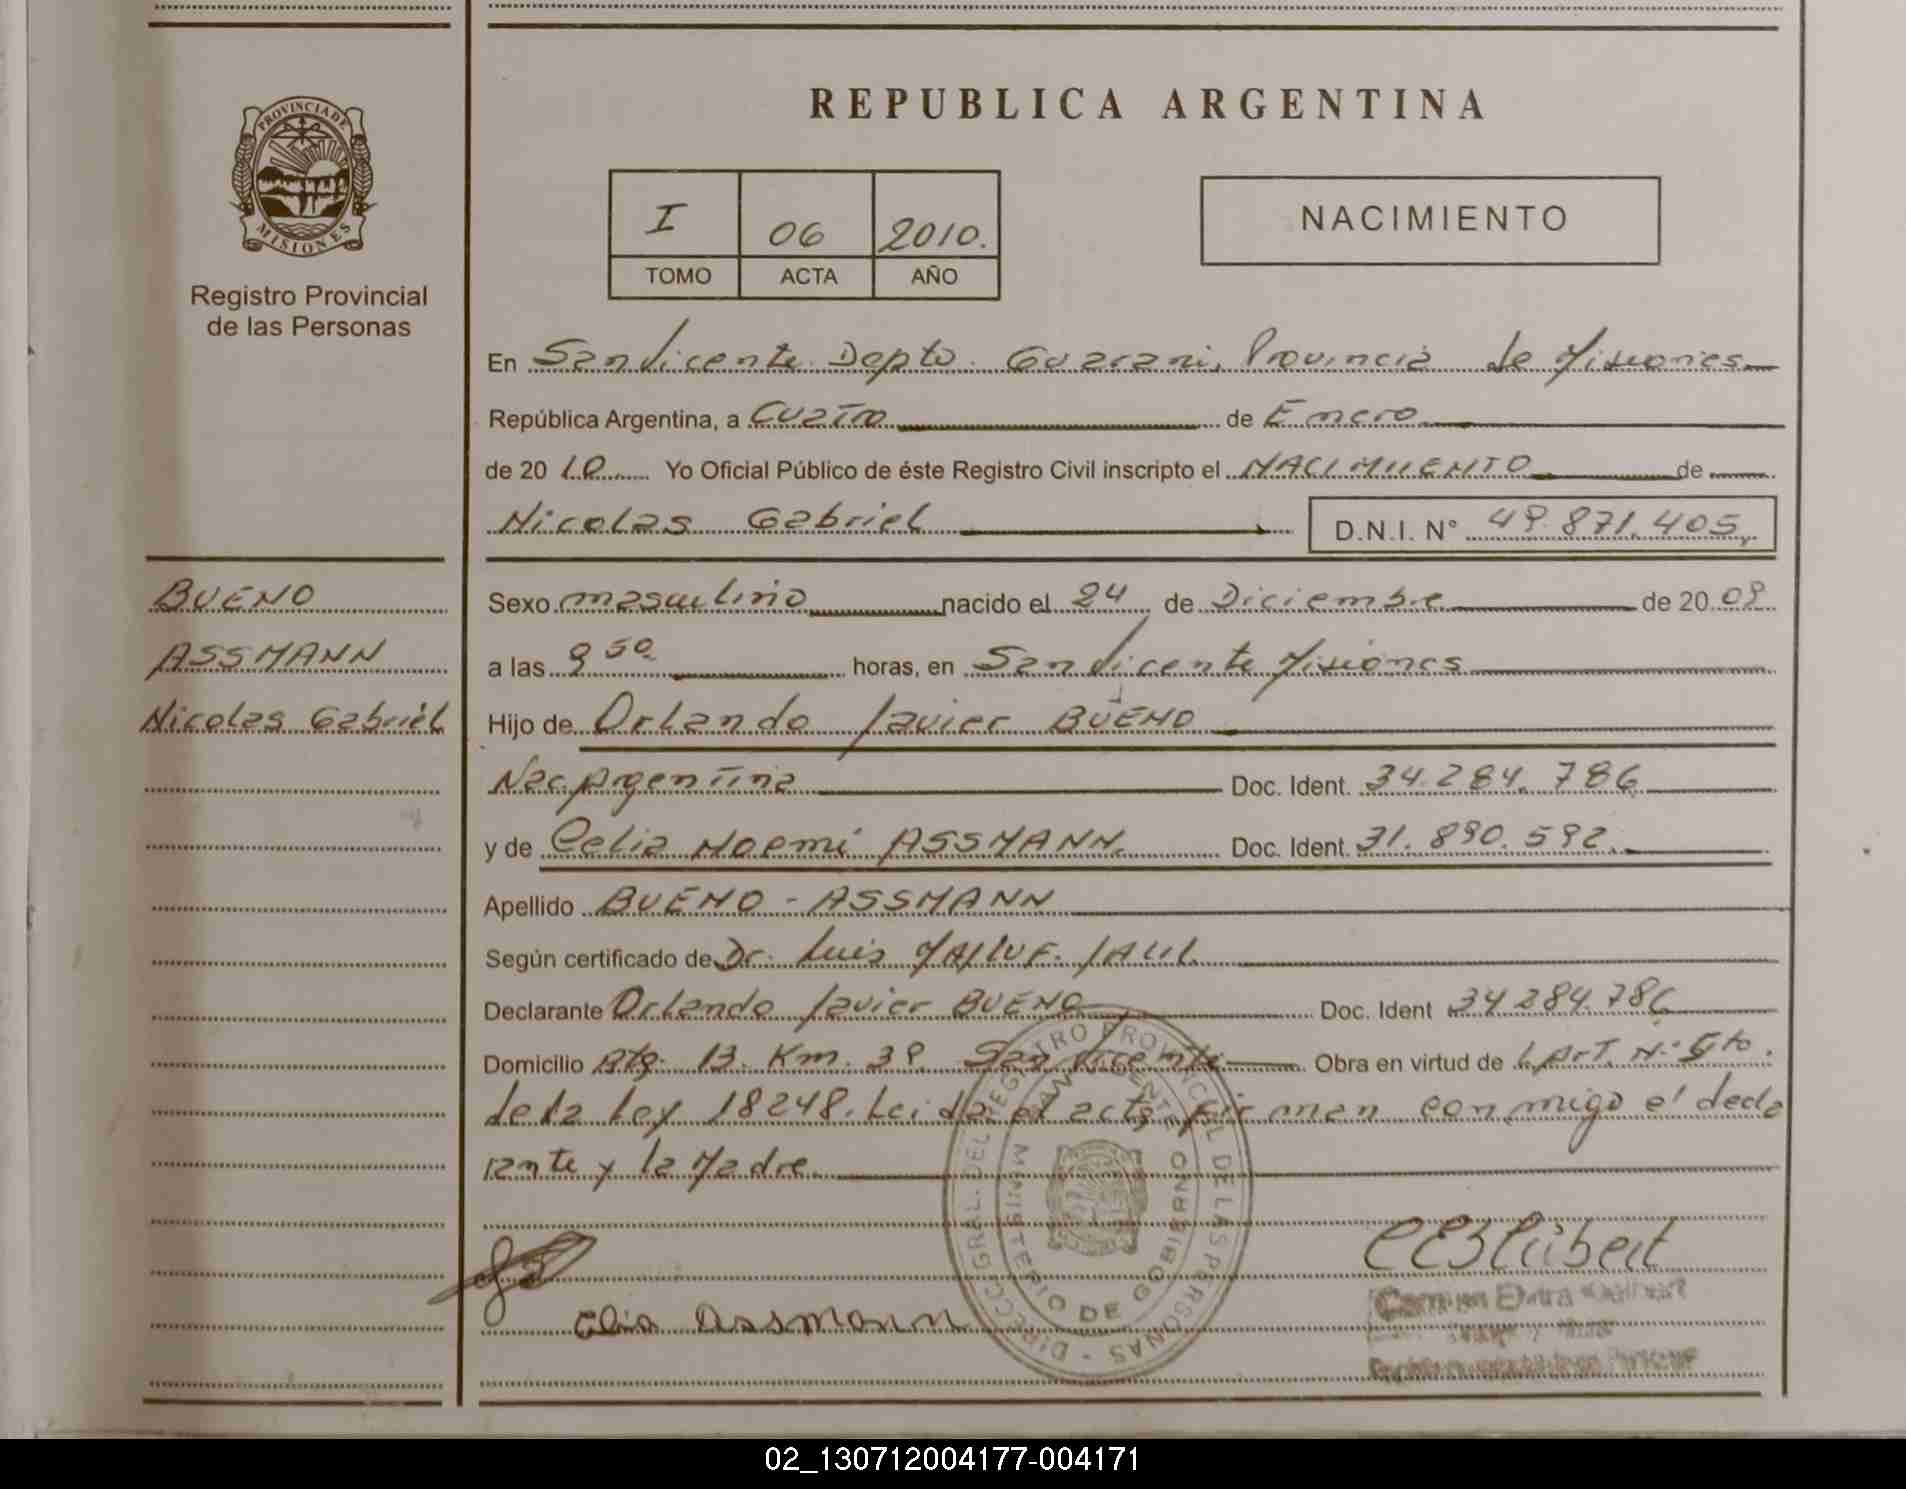 PROVINCIA DE
MISIONES
Registro Provincial
de las Personas
BUENO
ASSMANN
Nicolas Gabriel
REPUBLICA ARGENTINA
I 06 2010.
TOMO ACTA AÑO
NACIMIENTO
En San Vicente Depto. Guarani, Provincia de Misiones
República Argentina, a Cuatro de Enero
de 20 10 Yo Oficial Público de éste Registro Civil inscripto el NACIMIENTO de
Nicolas Gabriel D.N.I. N° 49.871.405,
Sexo masculino nacido el 24 de Diciembre de 20 09
a las 9 50 horas, en San Vicente Misiones
Hijo de Orlando Javier BUENO
Nac. Argentina Doc. Ident. 34.284.786
y de Celia Noemi ASSMANN. Doc. Ident. 31.890.592.
Apellido BUENO - ASSMANN
Según certificado de Dr. Luis
Declarante Orlando Javier BUENO Doc. Ident 34 284.786
Domicilio Rta. 13. Km. 39. San Vicente Obra en virtud de Art. N° 5to.
de la Ley 18248. Leida el acta firman conmigo el decla
rante y la Madre.
DIRECC. GRAL. DEL REGISTRO PROVINCIAL DE LAS PERSONAS
SAN VICENTE
MINISTERIO DE GOBIERNO
Assmann
02_130712004177-004171